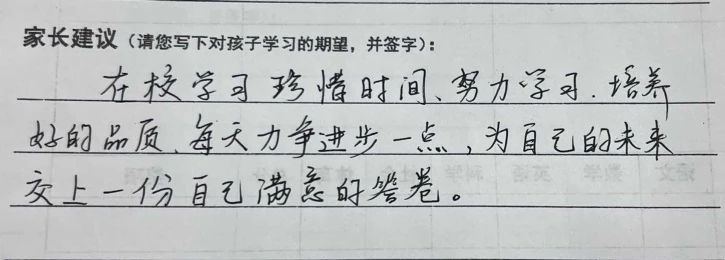 家长建议（请您写下对孩子学习的期望，并签字）：
在校学习珍惜时间、努力学习.培养
好的品质、每天力争进步一点，为自己的未来
交上一份自己满意的答卷。